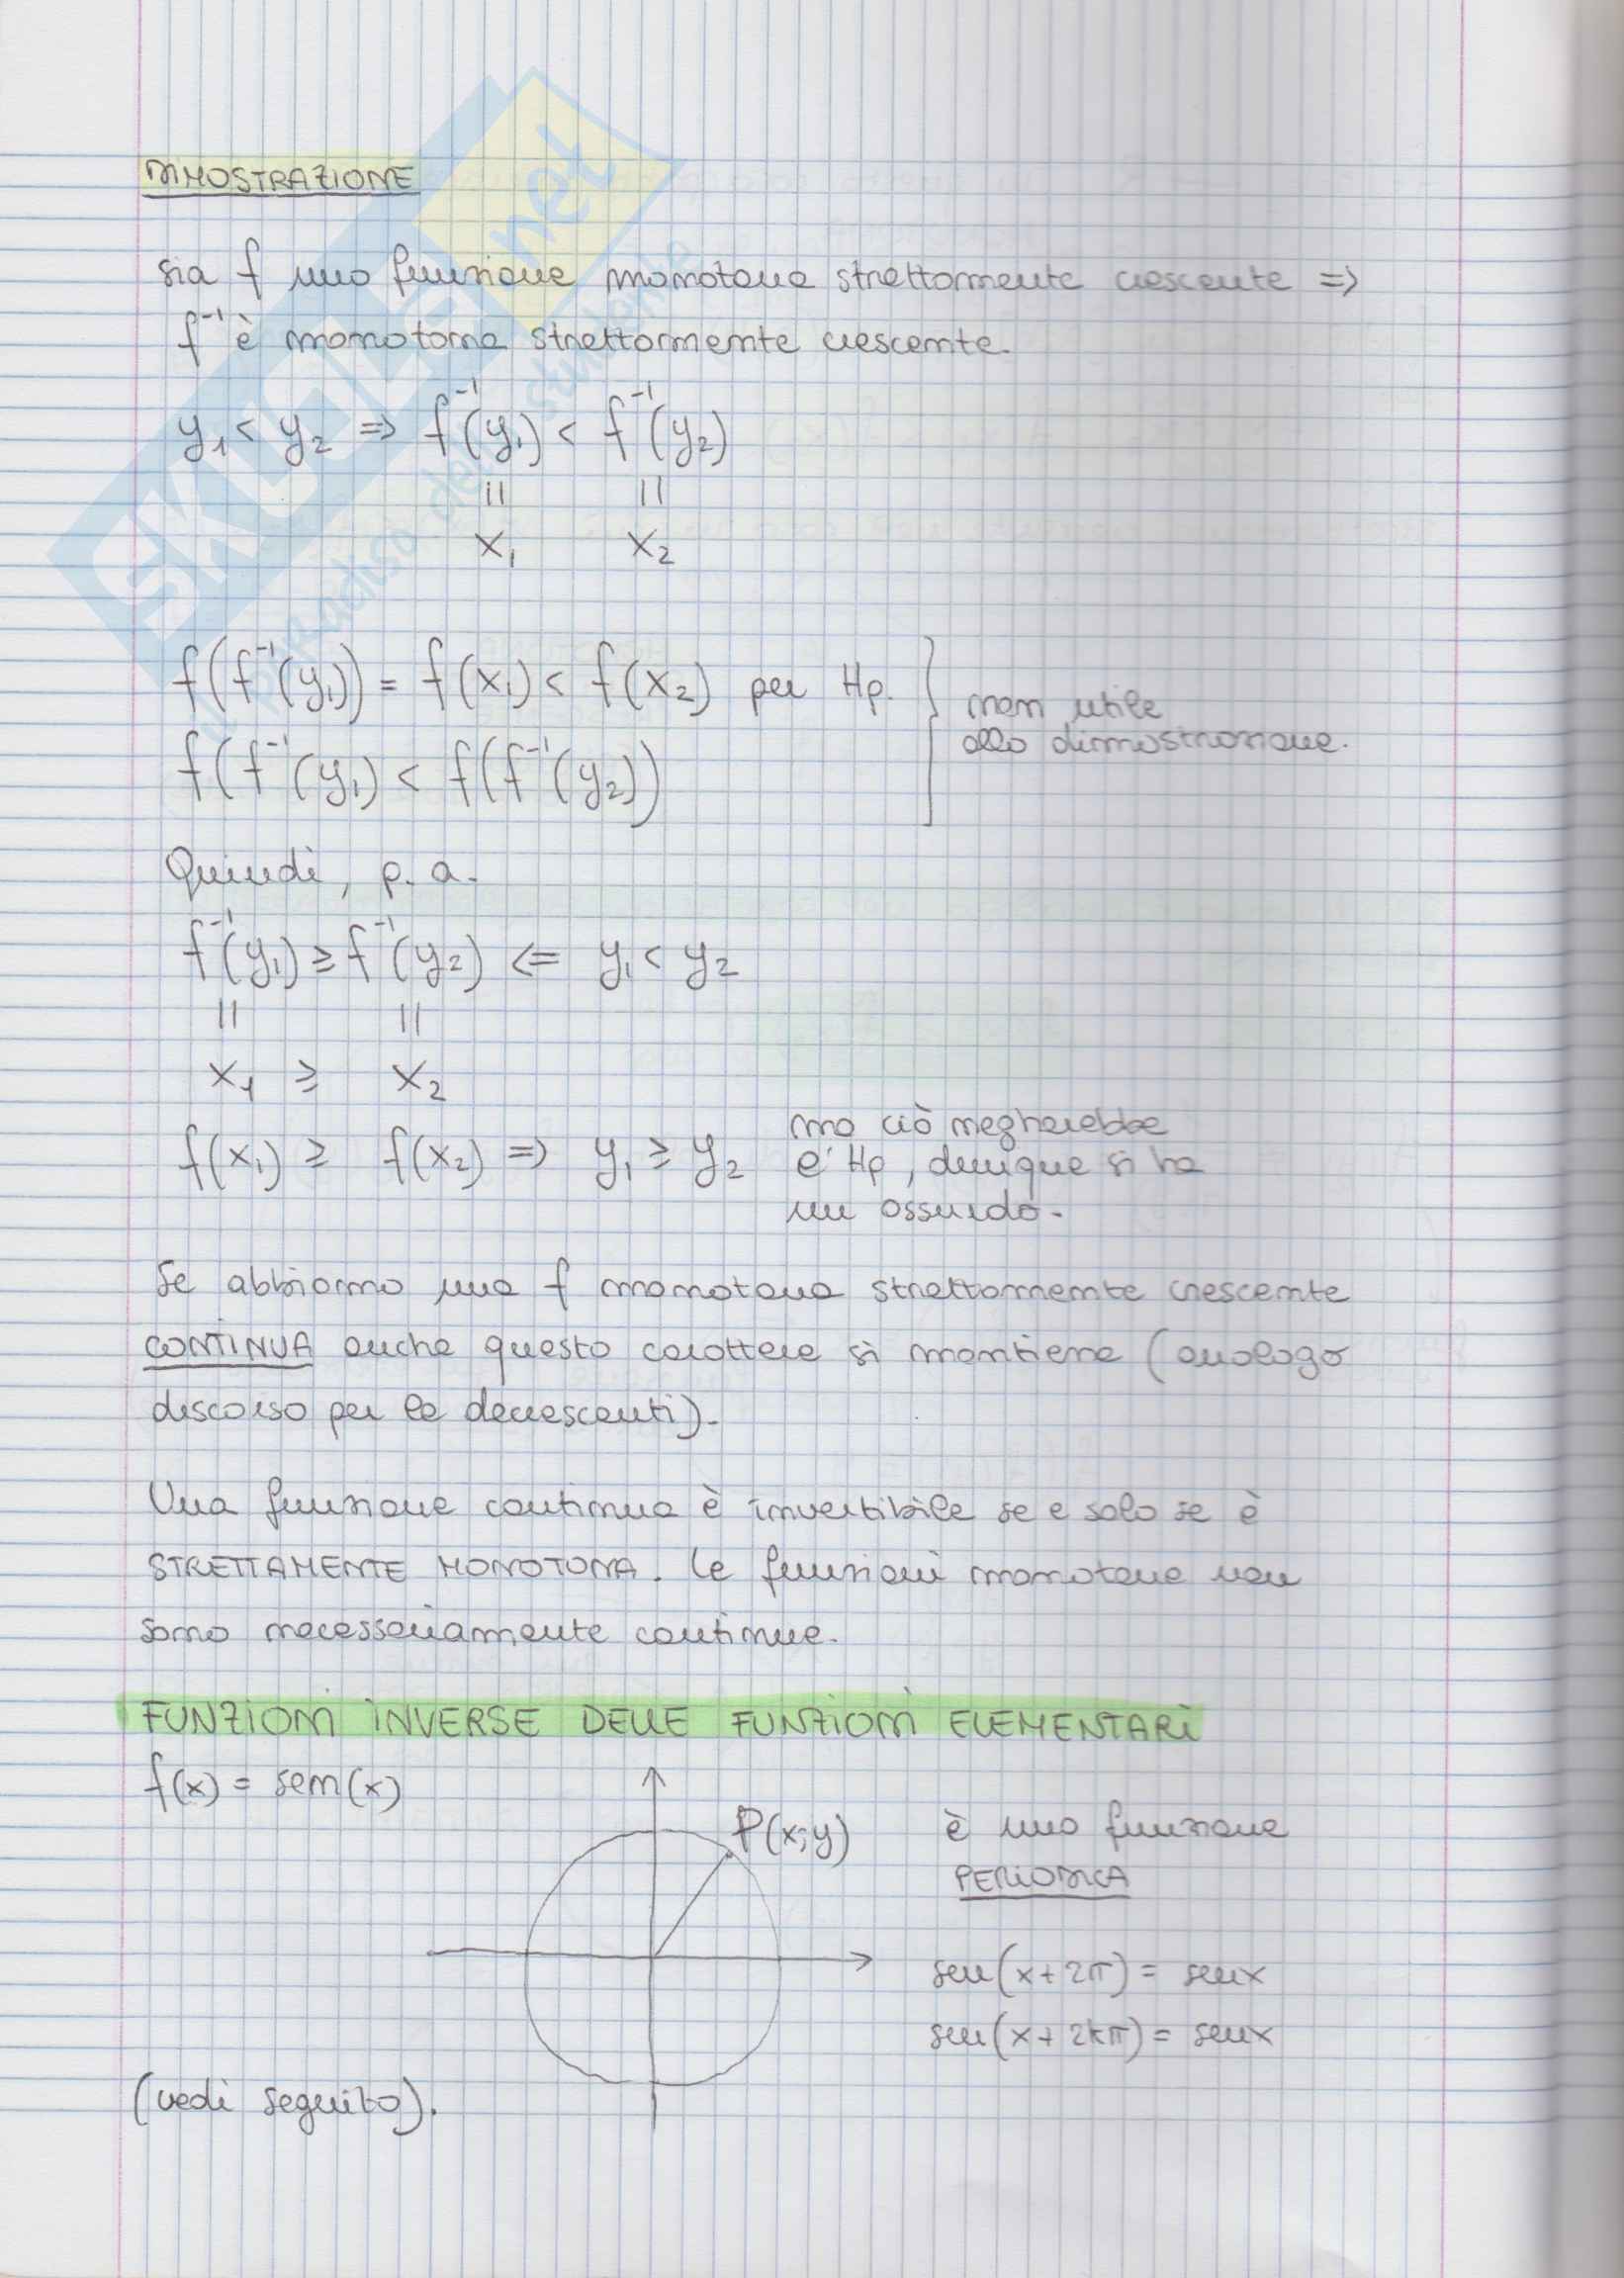 DIMOSTRAZIONE
sia f una funzione monotona strettamente crescente =>
f⁻¹ è monotona strettamente crescente.
y₁ < y₂ => f⁻¹(y₁) < f⁻¹(y₂)
|| ||
x₁ x₂
f(f⁻¹(y₁)) = f(x₁) < f(x₂) per Hp.
f(f⁻¹(y₁) < f(f⁻¹(y₂))
non utile
alla dimostrazione.
Quindi, p. a.
f⁻¹(y₁) ≥ f⁻¹(y₂) <= y₁ < y₂
|| ||
x₁ ≥ x₂
f(x₁) ≥ f(x₂) => y₁ ≥ y₂
ma ciò negherebbe
l' Hp, dunque si ha
un assurdo.
Se abbiamo una f monotona strettamente crescente
CONTINUA anche questo carattere si mantiene (analogo
discorso per le decrescenti).
Una funzione continua è invertibile se e solo se è
STRETTAMENTE MONOTONA. Le funzioni monotone non
sono necessariamente continue.
FUNZIONI INVERSE DELLE FUNZIONI ELEMENTARI
f(x) = sen(x)
P(x;y)
è una funzione
PERIODICA
sen(x+2π) = senx
sen(x+2kπ) = senx
(vedi seguito).
SKUOLA.net
il paradiso dello studente